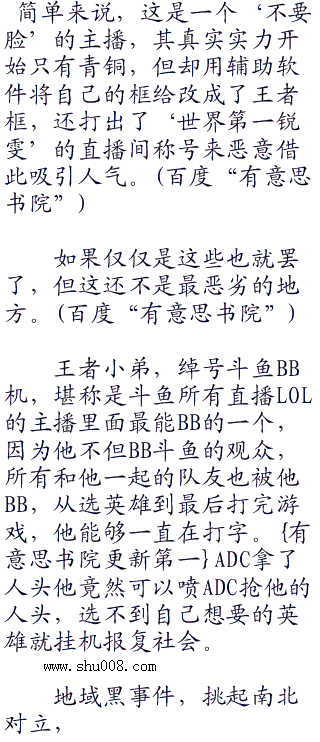 简单来说，这是一个‘不要
脸’的主播，其真实实力开
始只有青铜，但却用辅助软
件将自己的框给改成了王者
框，还打出了‘世界第一锐
雯’的直播间称号来恶意借
此吸引人气。(百度“有意思
书院”)
如果仅仅是这些也就罢
了，但这还不是最恶劣的地
方。(百度“有意思书院”)
王者小弟，绰号斗鱼BB
机，堪称是斗鱼所有直播LOL
的主播里面最能BB的一个，
因为他不但BB斗鱼的观众，
所有和他一起的队友也被他
BB，从选英雄到最后打完游
戏，他能够一直在打字。{有
意思书院更新第一}ADC拿了
人头他竟然可以喷ADC抢他的
人头，选不到自己想要的英
雄就挂机报复社会。
www.shu008.com
地域黑事件，挑起南北
对立，